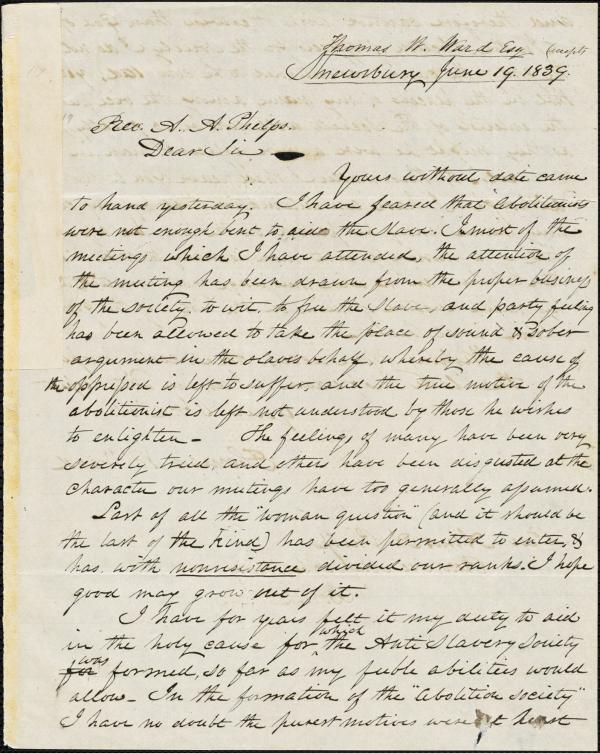 Thomas W. Ward Esq. (accepts
Shrewsbury June 19. 1839.
Rev. A. A. Phelps.
Dear Sir
Yours without date came
to hand yesterday. I have feared that Abolitionists
were not enough bent to aid the Slave. In most of the
meetings which I have attended, the attention of
the meeting has been drawn from the proper business
of the society, to wit, to free the Slave, and party feeling
has been allowed to take the place of sound & sober
argument in the slaves behalf, whereby the cause of
the oppressed is left to suffer, and the true motive of the
abolitionist is left not understood by those he wishes
to enlighten – The feelings of many have been very
severely tried and others have been disgusted at the
character our meetings have too generally assumed.
Last of all the "woman question" (and it should be
the last of the kind) has been permitted to enter, &
has with nonresistance divided our ranks. I hope
good may grow out of it.
I have for years felt it my duty to aid
in the holy cause for which the Anti Slavery Society
for was formed, so far as my feeble abilities would
allow – In the formation of the "Abolition Society"
I have no doubt the purest motives were at heart